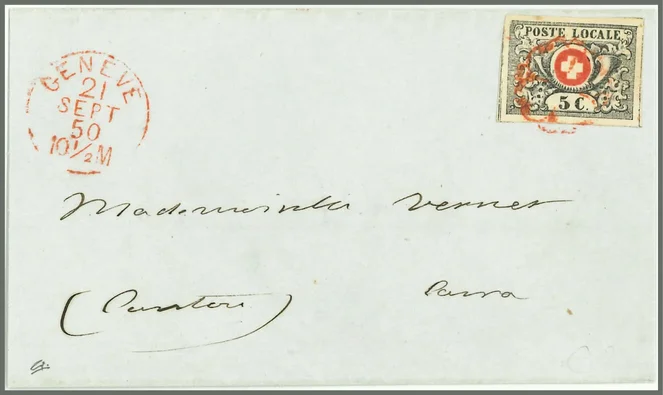 POSTE LOCALE
5 C.
GENEVE
21
SEPT
50
10½M
Mademoiselle Vernet